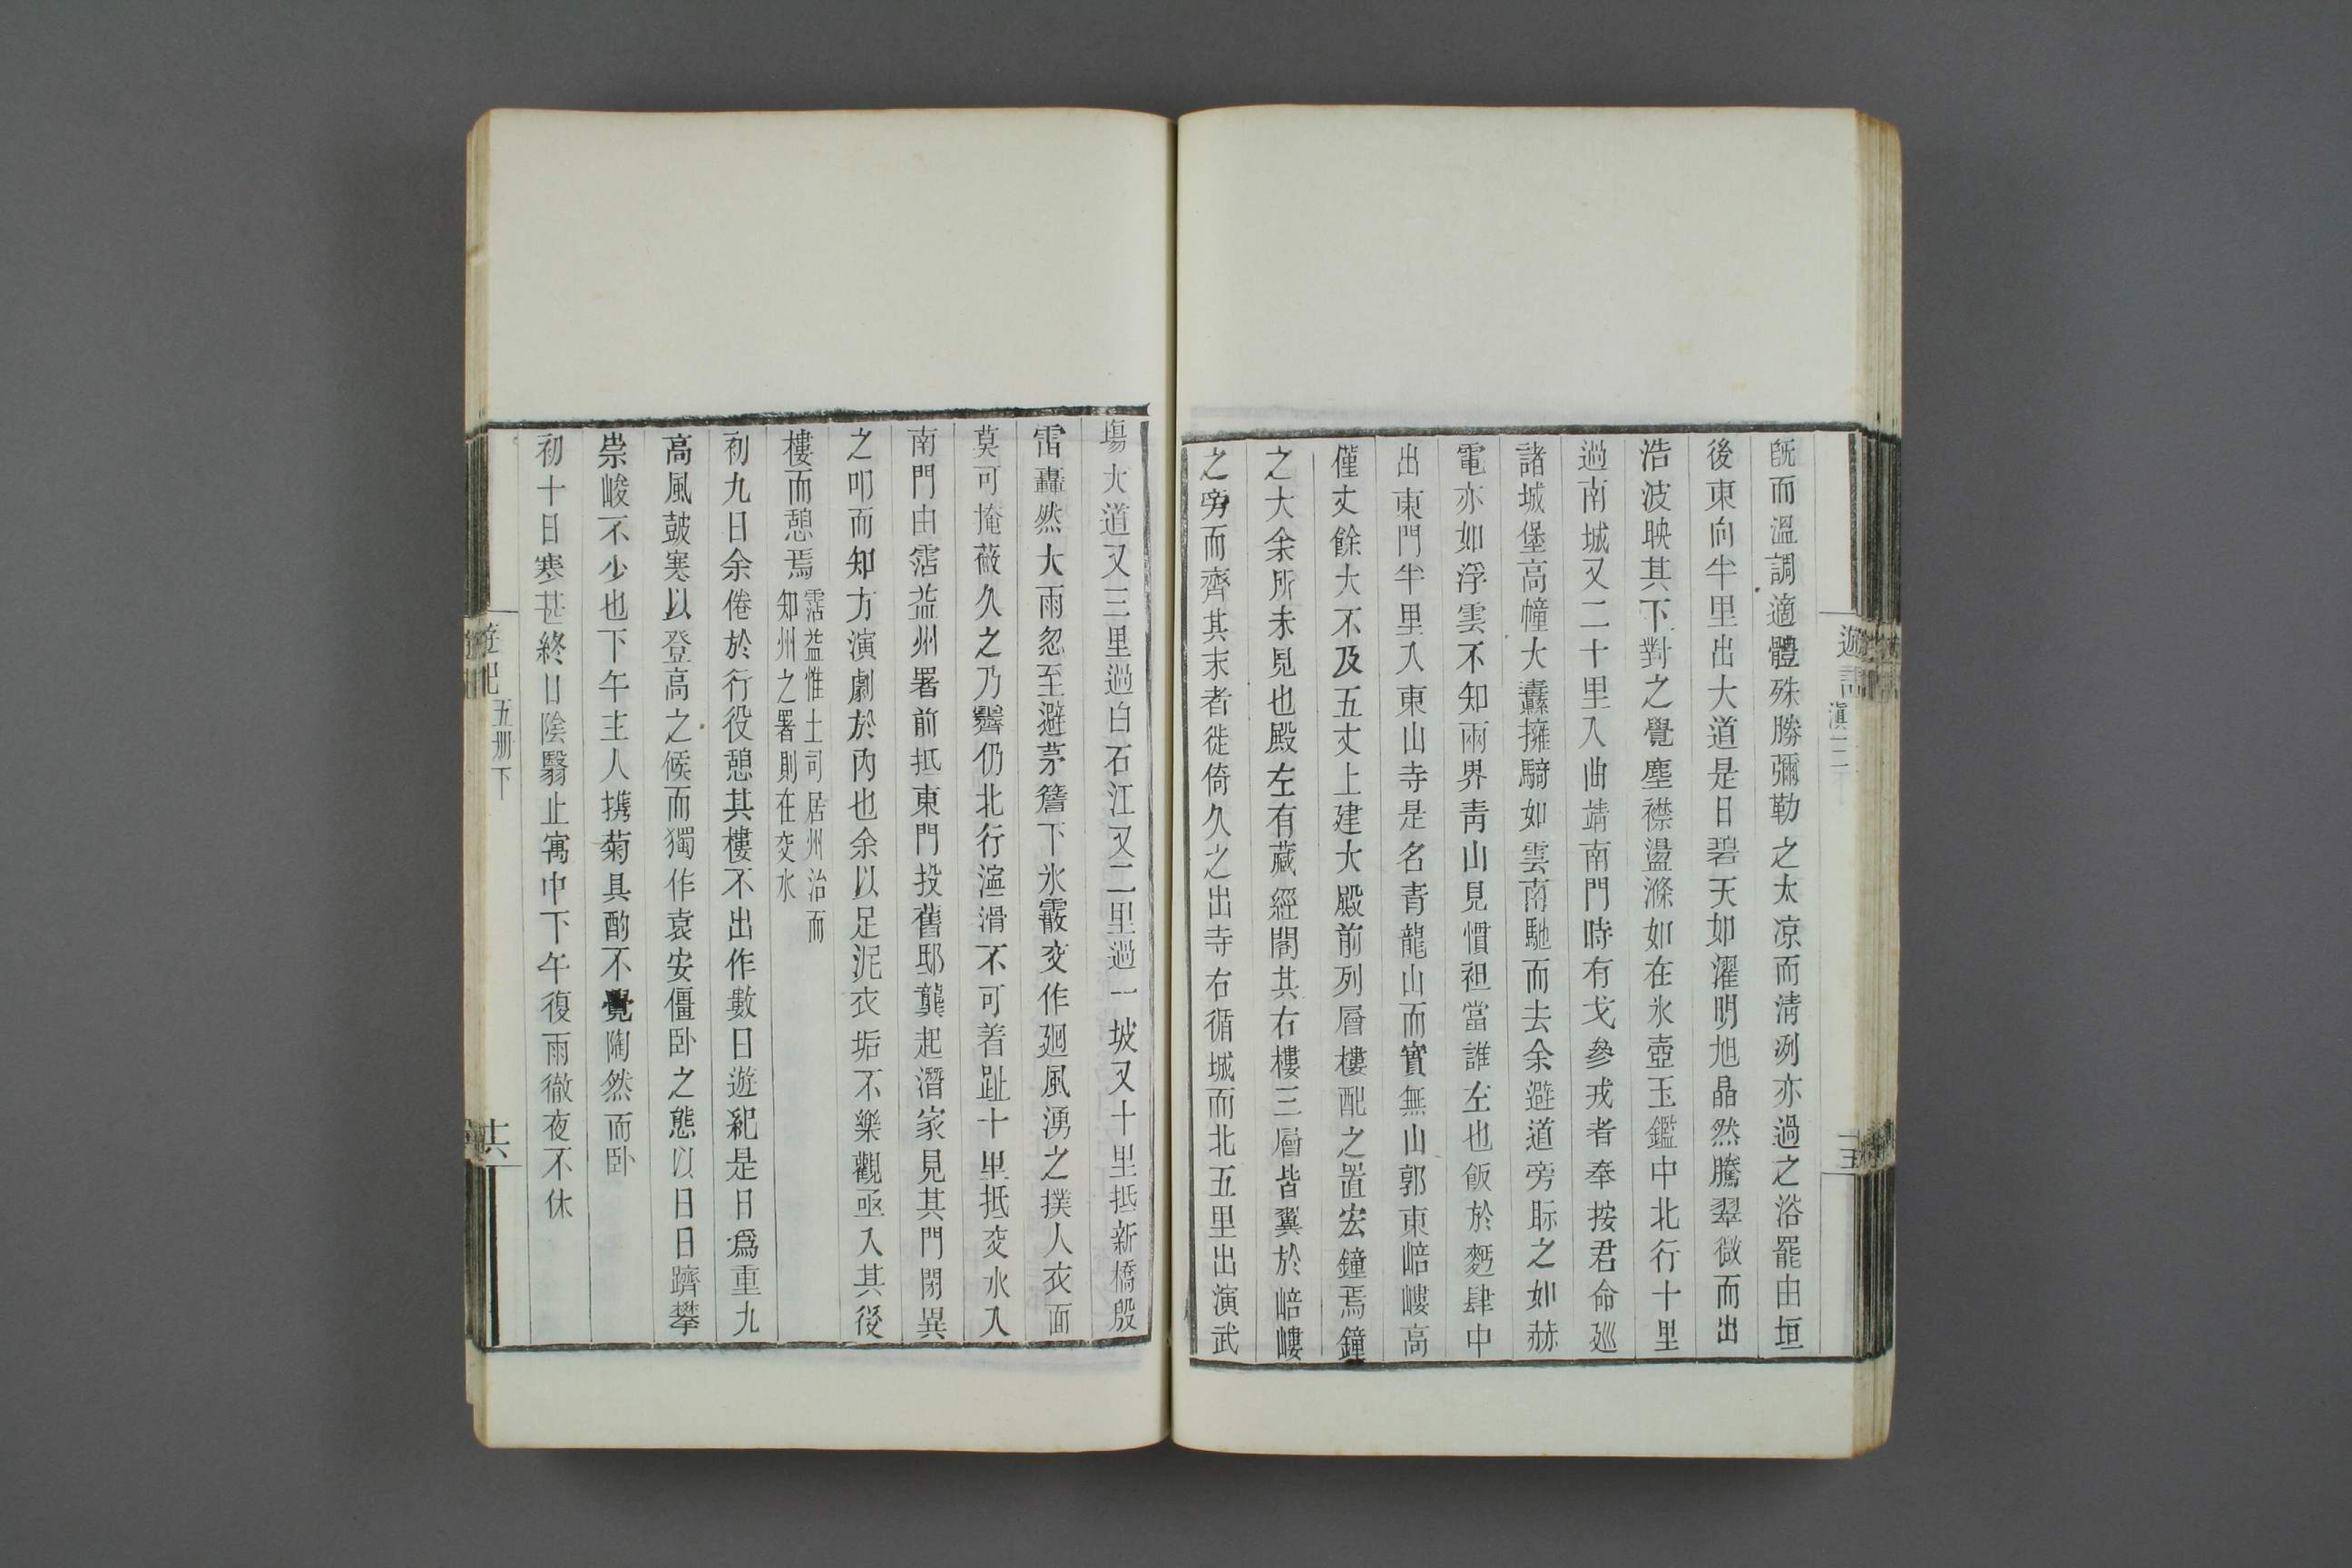 旣而溫調適體殊勝彌勒之太凉而淸冽亦過之浴罷由垣
後東向半里出大道是日碧天如濯明旭晶然騰翠微而出
浩波映其下對之覺塵襟盪滌如在氷壺玉鑑中北行十里
過南城又二十里入曲靖南門時有戈參戎者奉按君命廵
諸城堡高幢大纛擁騎如雲南馳而去余避道旁眎之如赫
電亦如浮雲不知兩界靑山見慣袒當誰左也飯於麪肆中
出東門半里入東山寺是名青龍山而實無山郭東崆嶁高
僅丈餘大不及五丈上建大殿前列層樓配之置宏鐘焉鐘
之大余所未見也殿左有藏經閣其右樓三層皆翼於崆嶁
之旁而齊其末者徙倚久之出寺右循城而北五里出演武
塲大道又三里過白石江又二里過一坡又十里抵新橋殷
雷轟然大雨忽至避茅簷下氷霰交作廻風湧之撲人衣面
莫可掩蔽久之乃霽仍北行濘滑不可着趾十里抵交水入
南門由霑益州署前抵東門投舊邸龔起潛家見其門閉異
之叩而知方演劇於內也余以足泥衣垢不樂觀亟入其後
樓而憩焉霑益惟土司居州治而
知州之署則在交水
初九日余倦於行役憩其樓不出作數日遊紀是日爲重九
高風皷寒以登高之候而獨作袁安僵卧之態以日日躋攀
崇峻不少也下午主人携菊具酌不覺陶然而卧
初十日寒甚終日陰翳止寓中下午復雨徹夜不休
遊記
五册下